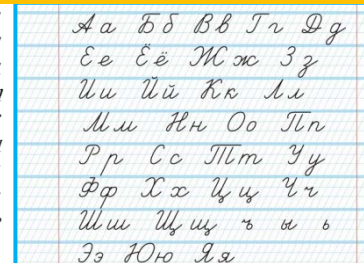 Аа Бб Вв Гг Дд
Ее Ёё Жж Зз
Ии Йй Кк Лл
Мм Нн Оо Пп
Рр Сс Тт Уу
Фф Хх Цц Чч
Шш Щщ ъ ы ь
Ээ Юю Яя